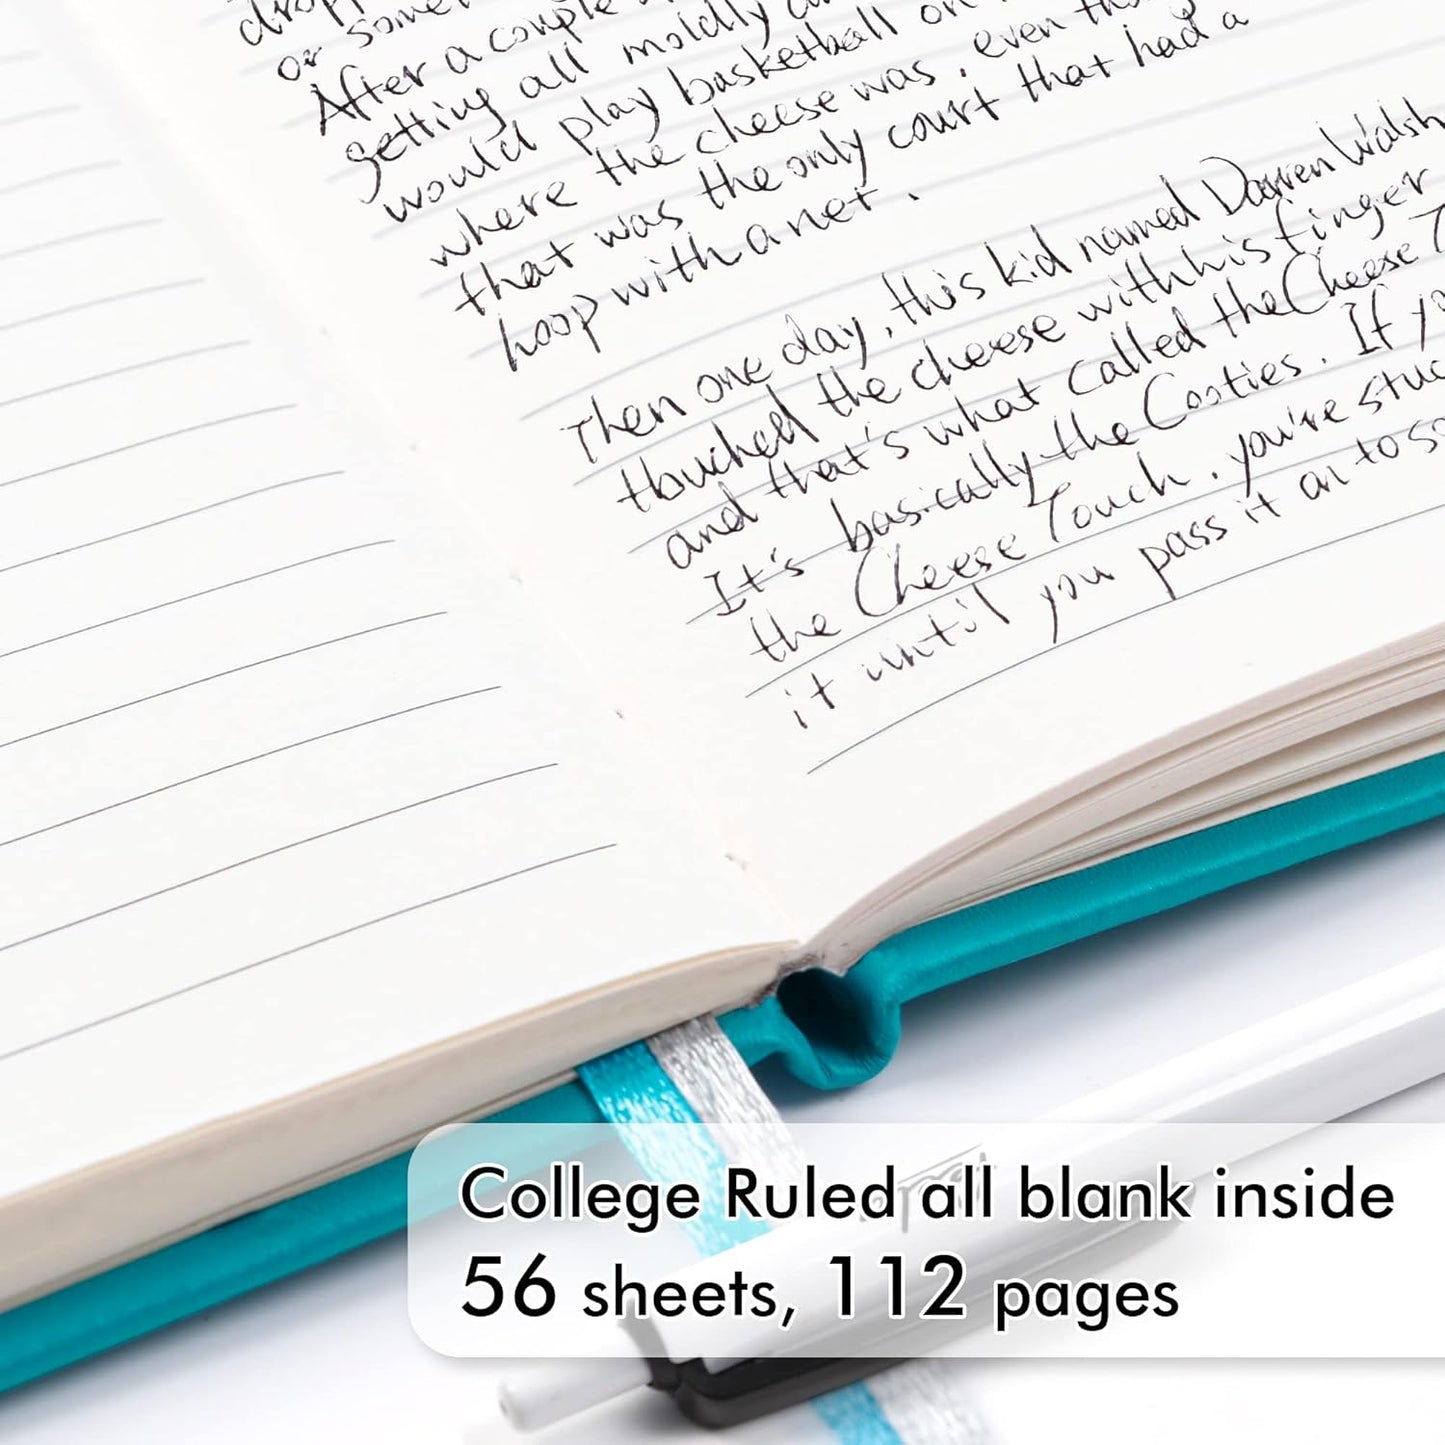 or some
After a couple
getting all moldly
would play basketball on
where the cheese was, even
that was the only court that had a
hoop with a net.
Then one day, this kid named Darren Walsh
touched the cheese with his finger
and that's what called the Cheese T
It's basically the Cooties. If yo
the Cheese Touch, you're stuc
it until you pass it on to so
College Ruled all blank inside
56 sheets, 112 pages